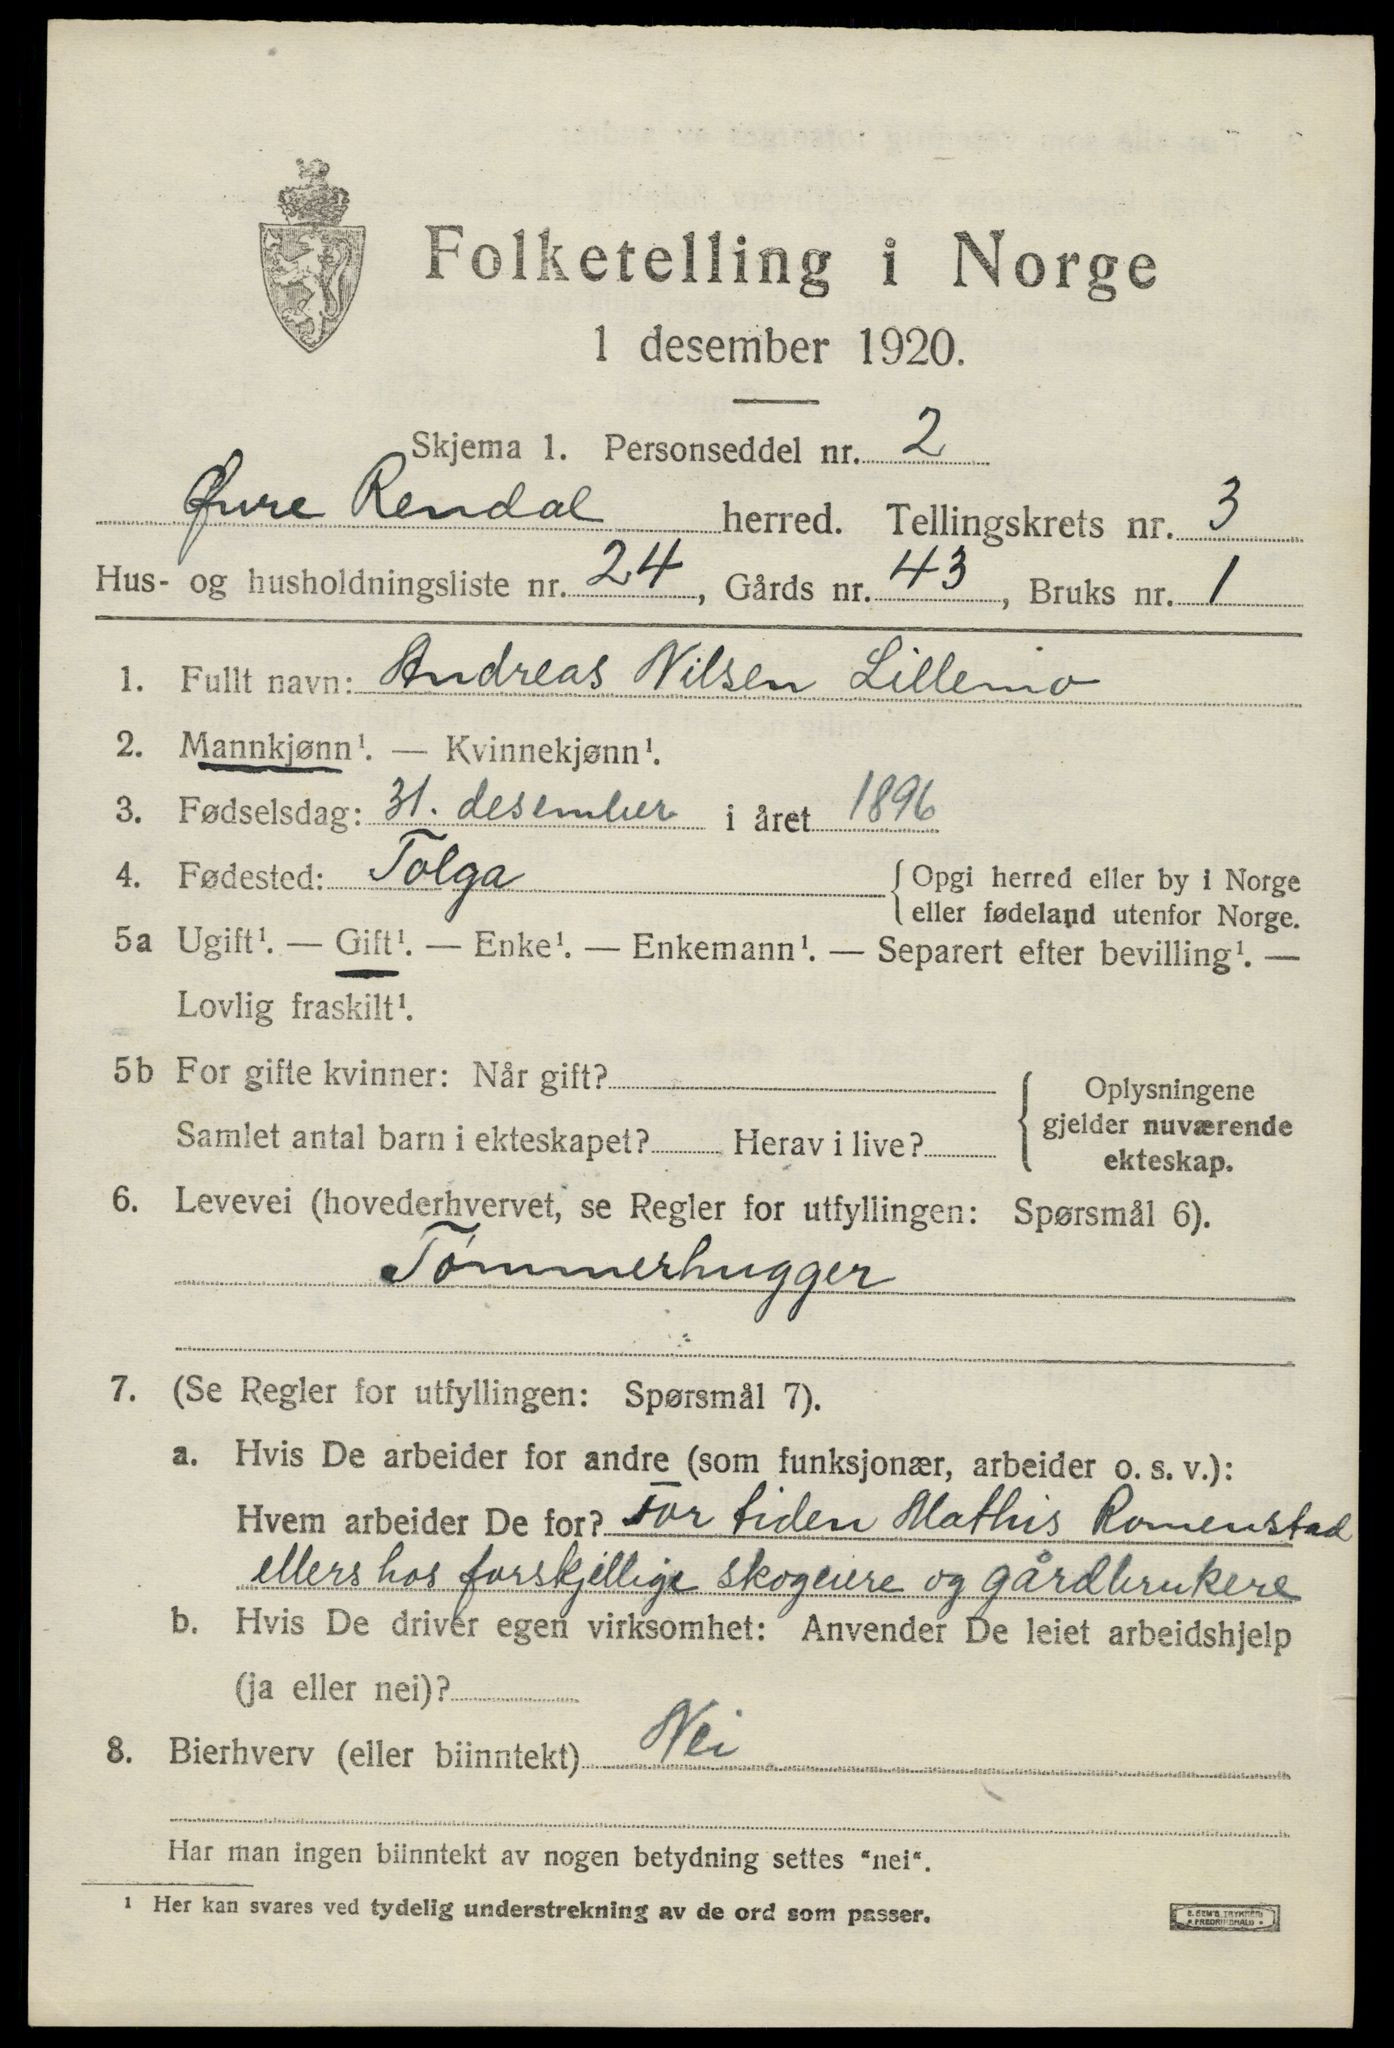 Folketelling i Norge
1 desember 1920.
Skjema 1. Personseddel nr. 2
Øvre Rendal herred. Tellingskrets nr. 3
Hus- og husholdningsliste nr. 24, Gårds nr. 43, Bruks nr. 1
1. Fullt navn: Andreas Nilsen Lillemo
2. Mannkjønn¹. — Kvinnekjønn¹.
3. Fødselsdag: 31. desember i året 1896
4. Fødested: Tolga { Opgi herred eller by i Norge
eller fødeland utenfor Norge.
5a Ugift¹. — Gift¹. — Enke¹. — Enkemann¹. — Separert efter bevilling¹. —
Lovlig fraskilt¹.
5b For gifte kvinner: Når gift?
Samlet antal barn i ekteskapet? Herav i live?
{ Oplysningene
gjelder nuværende
ekteskap.
6. Levevei (hovederhvervet, se Regler for utfyllingen: Spørsmål 6).
Tømmerhugger
7. (Se Regler for utfyllingen: Spørsmål 7).
a. Hvis De arbeider for andre (som funksjonær, arbeider o. s. v.):
Hvem arbeider De for? For tiden Mathis Romenstad
ellers hos forskjellige skogeiere og gårdbrukere
b. Hvis De driver egen virksomhet: Anvender De leiet arbeidshjelp
(ja eller nei)?
8. Bierhverv (eller biinntekt) Nei
Har man ingen biinntekt av nogen betydning settes "nei".
¹ Her kan svares ved tydelig understrekning av de ord som passer.
E. SEM'S TRYKKERI
FREDRIKSHALD